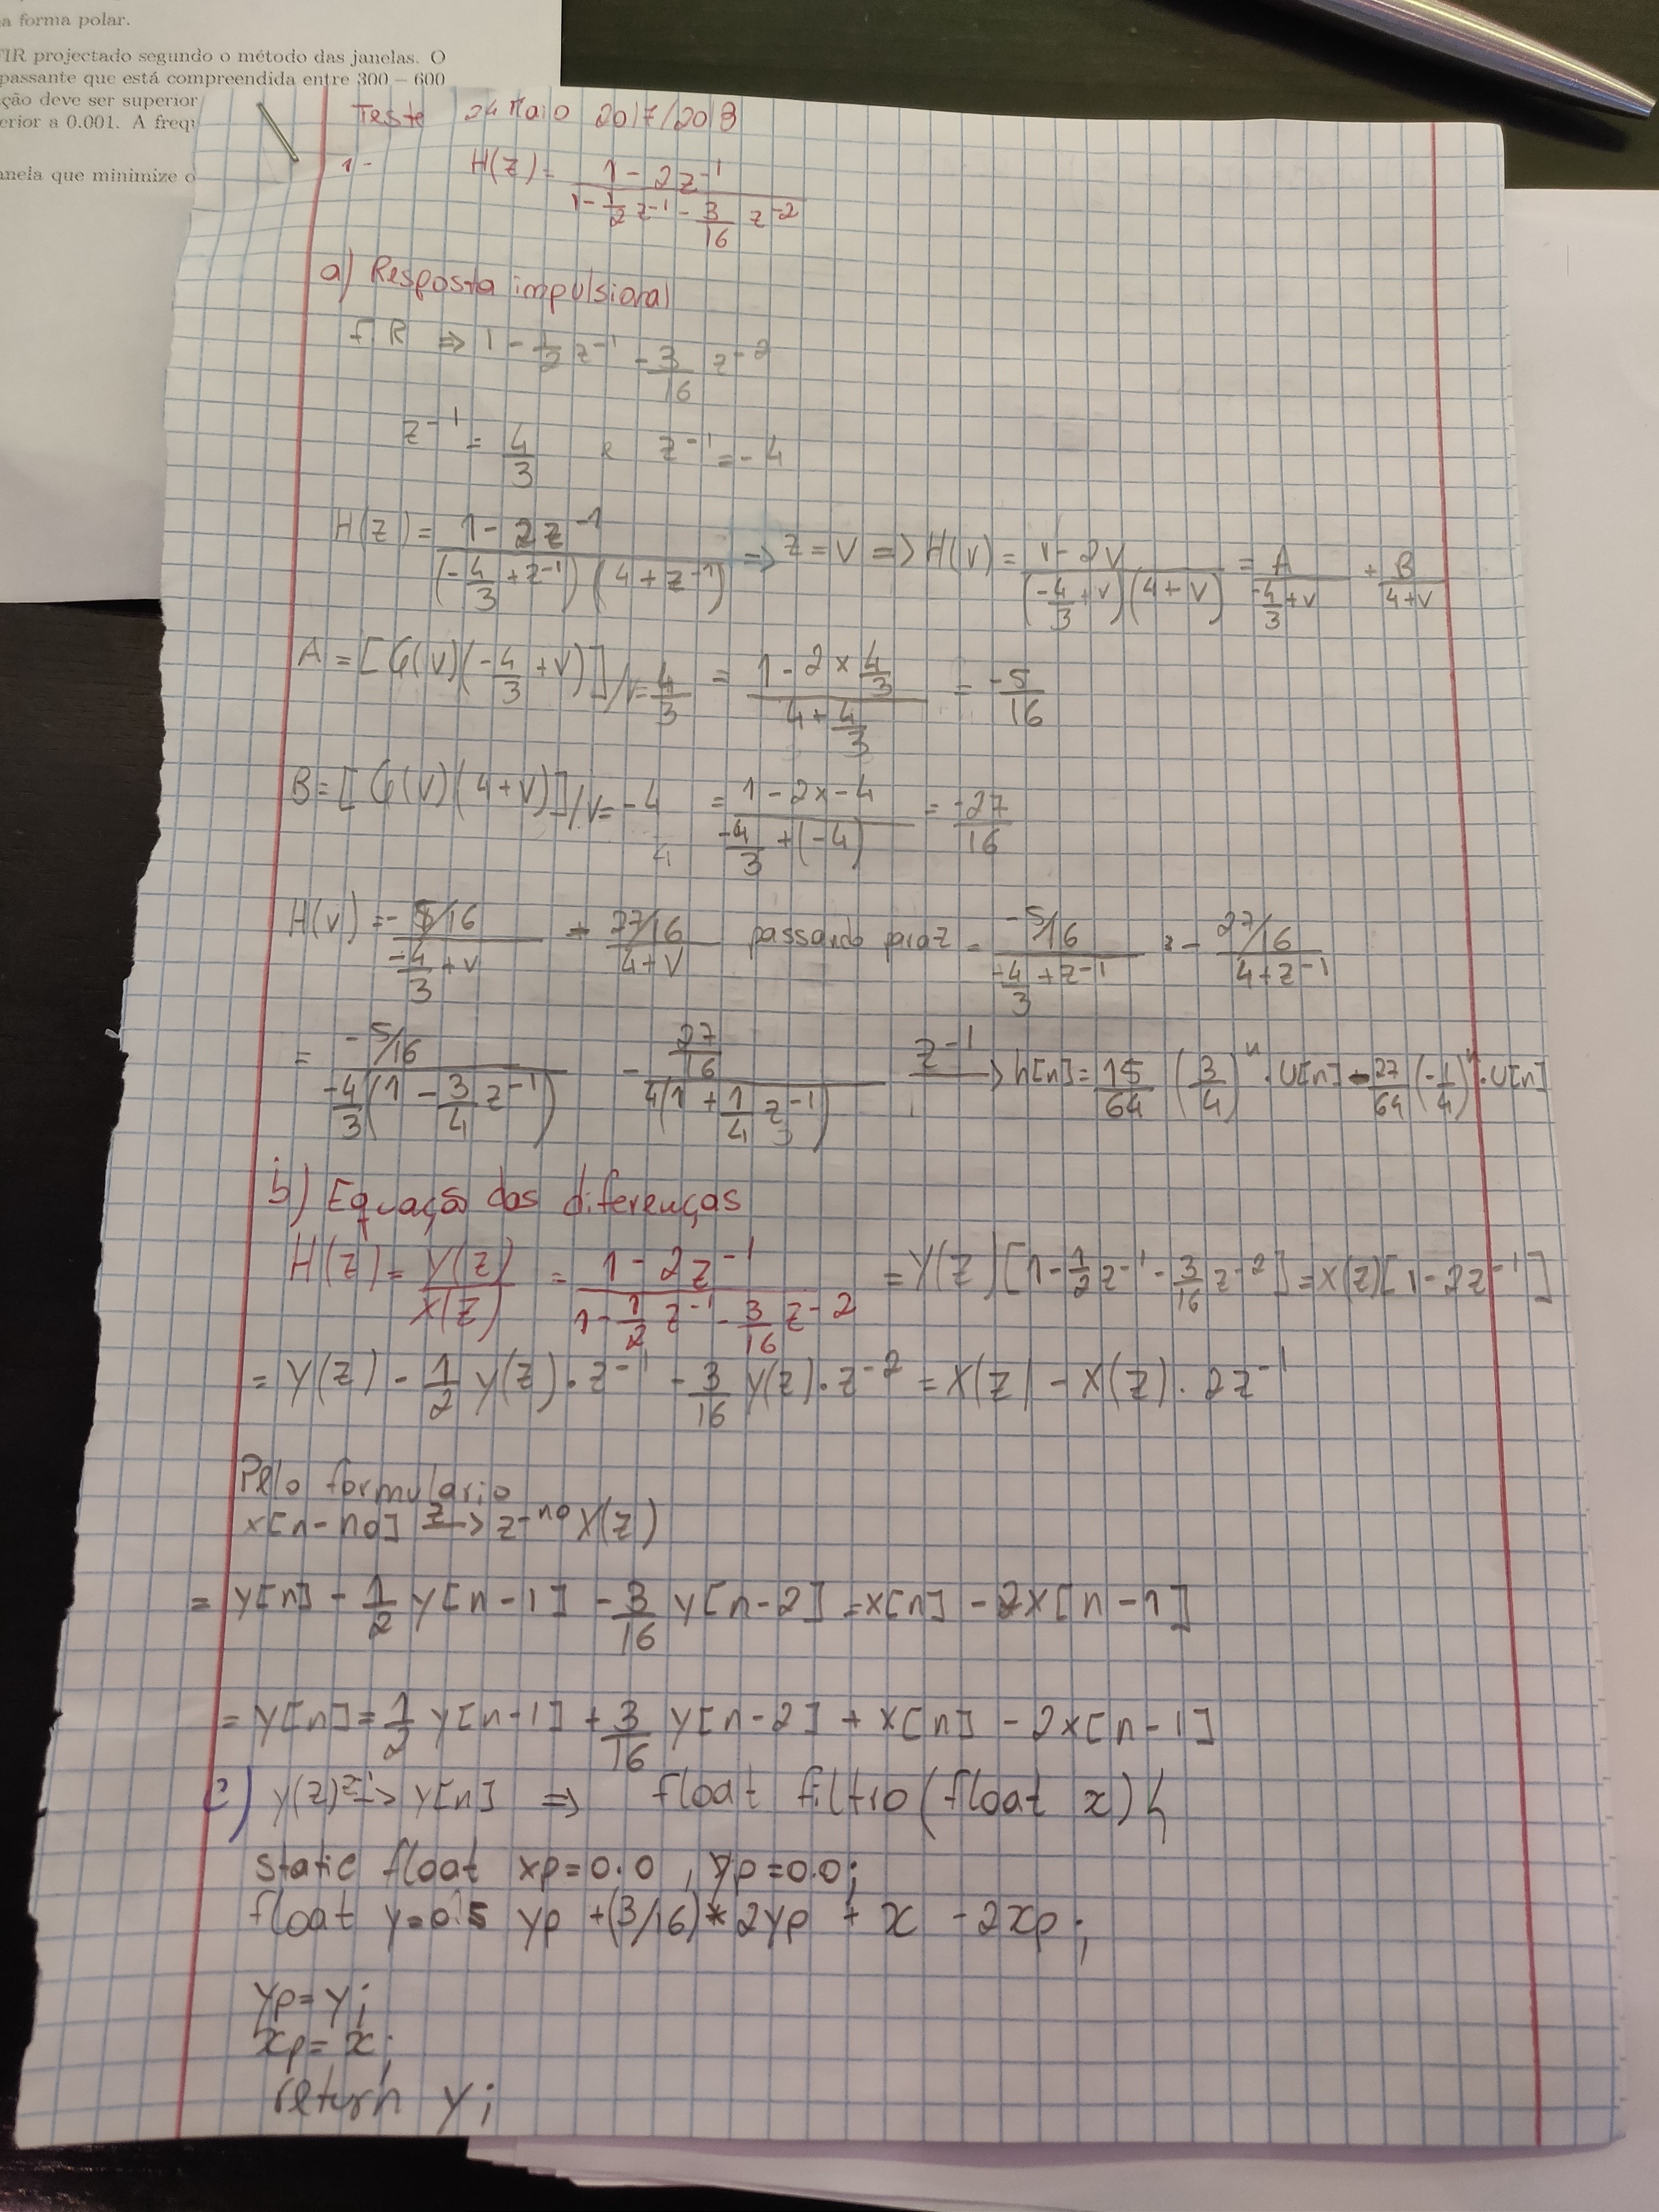 a forma polar.
FIR projectado segundo o método das janelas. O
passante que está compreendida entre 300 – 600
ção deve ser superior
erior a 0.001. A frequ
anela que minimize o
Teste 24 Maio 2017/2018
1- H(z) = (1 - 2z^-1) / (1 - 1/2 z^-1 - 3/16 z^-2)
a) Resposta impulsional
fR => 1 - 1/2 z^-1 - 3/16 z^-2
z^-1 = 4/3 e z^-1 = -4
H(z) = (1 - 2z^-1) / ((-4/3 + z^-1)(4 + z^-1)) => z = v => H(v) = (1 - 2v) / ((-4/3 + v)(4 + v)) = A / (-4/3 + v) + B / (4 + v)
A = [G(v)(-4/3 + v)] / v = 4/3 = (1 - 2 x 4/3) / (4 + 4/3) = -5/16
B = [G(v)(4 + v)] / v = -4 = (1 - 2 x -4) / (-4/3 + (-4)) = -27/16
H(v) = (-5/16) / (-4/3 + v) - (27/16) / (4 + v) passando para z = (-5/16) / (-4/3 + z^-1) - (27/16) / (4 + z^-1)
= (-5/16) / (-4/3 (1 - 3/4 z^-1)) - (27/16) / (4 (1 + 1/4 z^-1)) z^-1 -> h[n] = 15/64 (3/4)^n . U[n] - 27/64 (-1/4)^n . U[n]
b) Equação das diferenças
H(z) = Y(z)/X(z) = (1 - 2z^-1) / (1 - 1/2 z^-1 - 3/16 z^-2) = Y(z) [1 - 1/2 z^-1 - 3/16 z^-2] = X(z) [1 - 2z^-1]
= Y(z) - 1/2 Y(z) . z^-1 - 3/16 Y(z) . z^-2 = X(z) - X(z) . 2z^-1
Pelo formulario
x[n - n0] z -> z^-n0 X(z)
= y[n] - 1/2 y[n - 1] - 3/16 y[n - 2] = x[n] - 2x[n - 1]
= y[n] = 1/2 y[n - 1] + 3/16 y[n - 2] + x[n] - 2x[n - 1]
c) y(z) z^-1 -> y[n] => float filtro (float x) {
static float xp = 0.0, yp = 0.0;
float y = 0.5 yp + (3/16) * 2yp + x - 2xp;
yp = y;
xp = x;
return y;